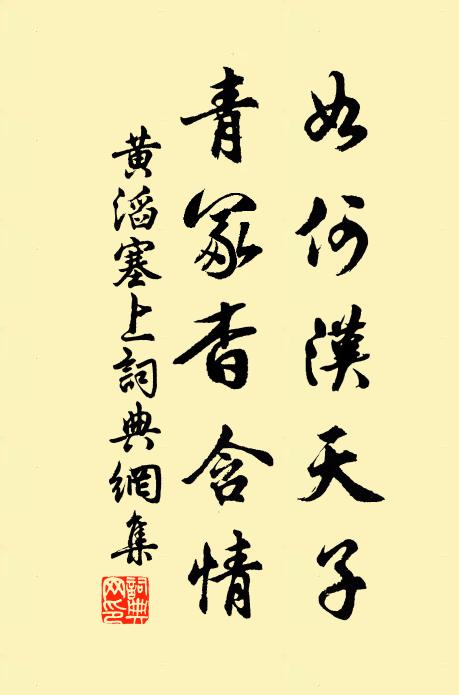 如何漢天子
青冢杳含情
黃滔塞上詞典網集
詞典网印